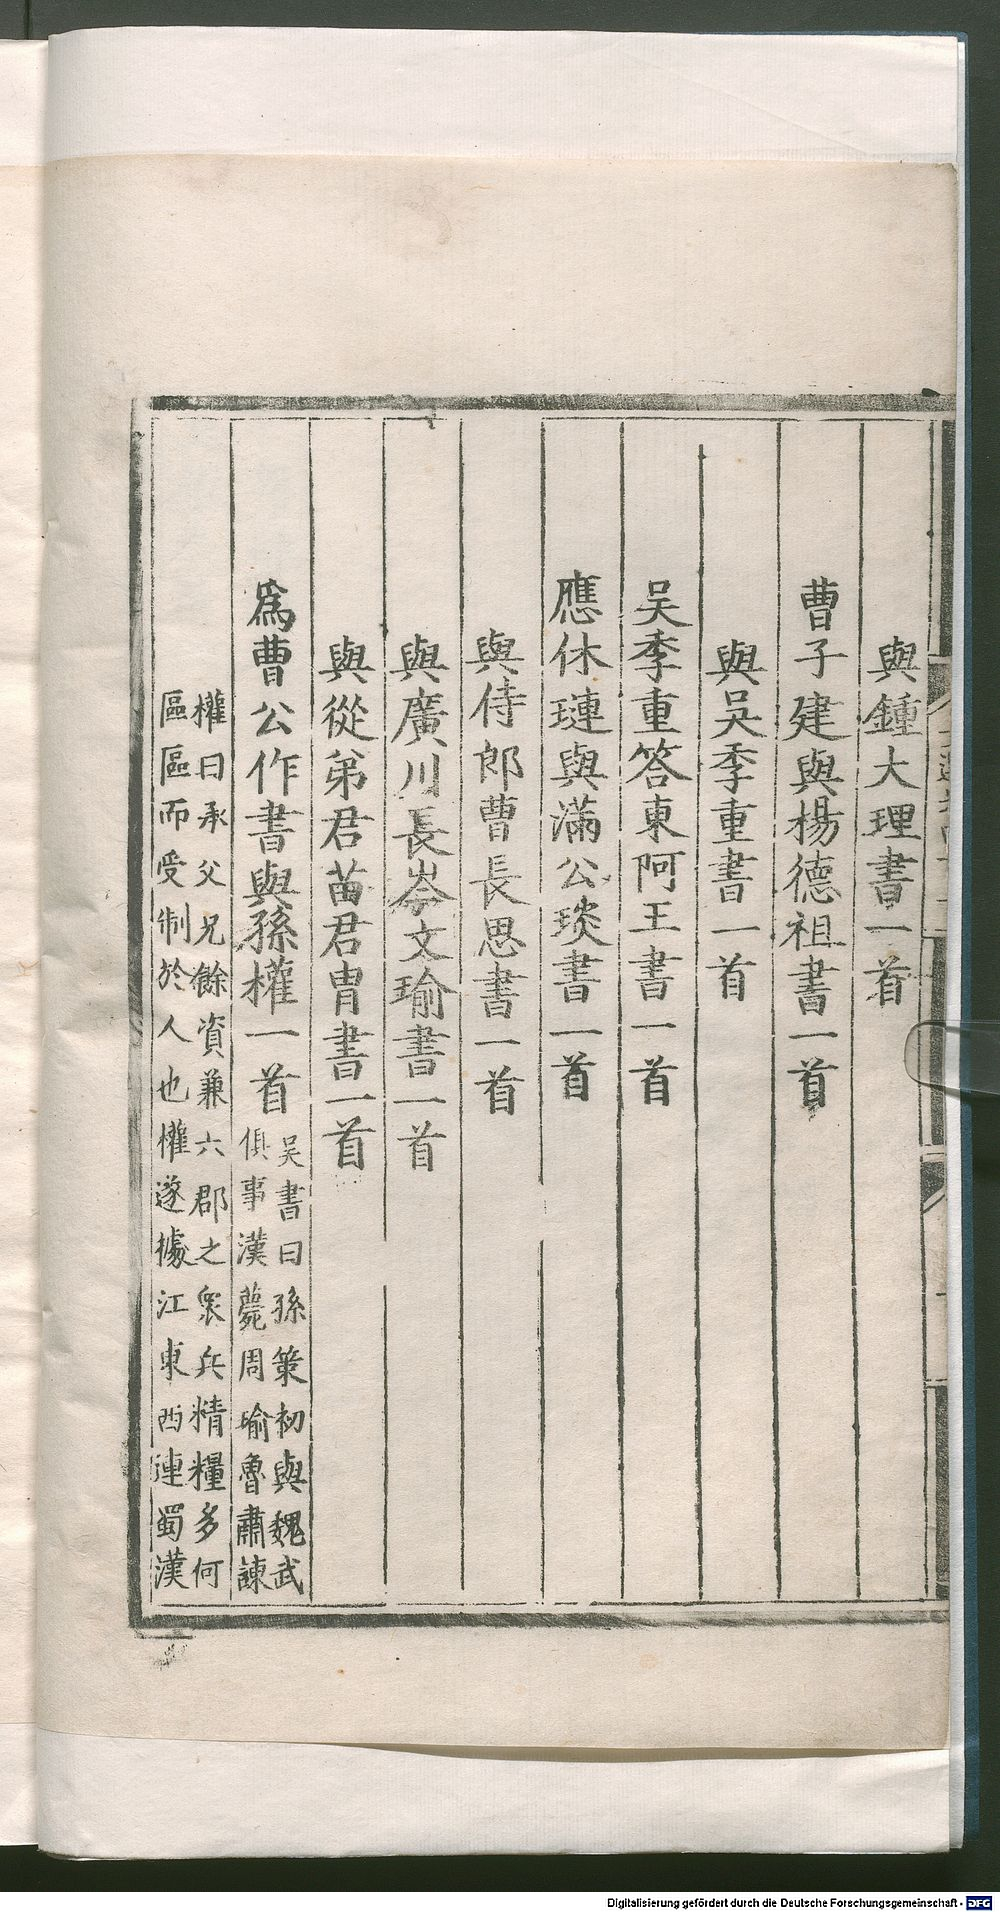 與鍾大理書一首
曹子建與楊德祖書一首
與吳季重書一首
吳季重答東阿王書一首
應休璉與滿公琰書一首
與侍郎曹長思書一首
與廣川長岑文瑜書一首
與從弟君苗君胄書一首
爲曹公作書與孫權一首
吳書曰孫策初與魏武
俱事漢薨周瑜魯肅諫
權曰承父兄餘資兼六郡之衆兵精糧多何
區區而受制於人也權遂據江東西連蜀漢
Digitalisierung gefördert durch die Deutsche Forschungsgemeinschaft - DFG